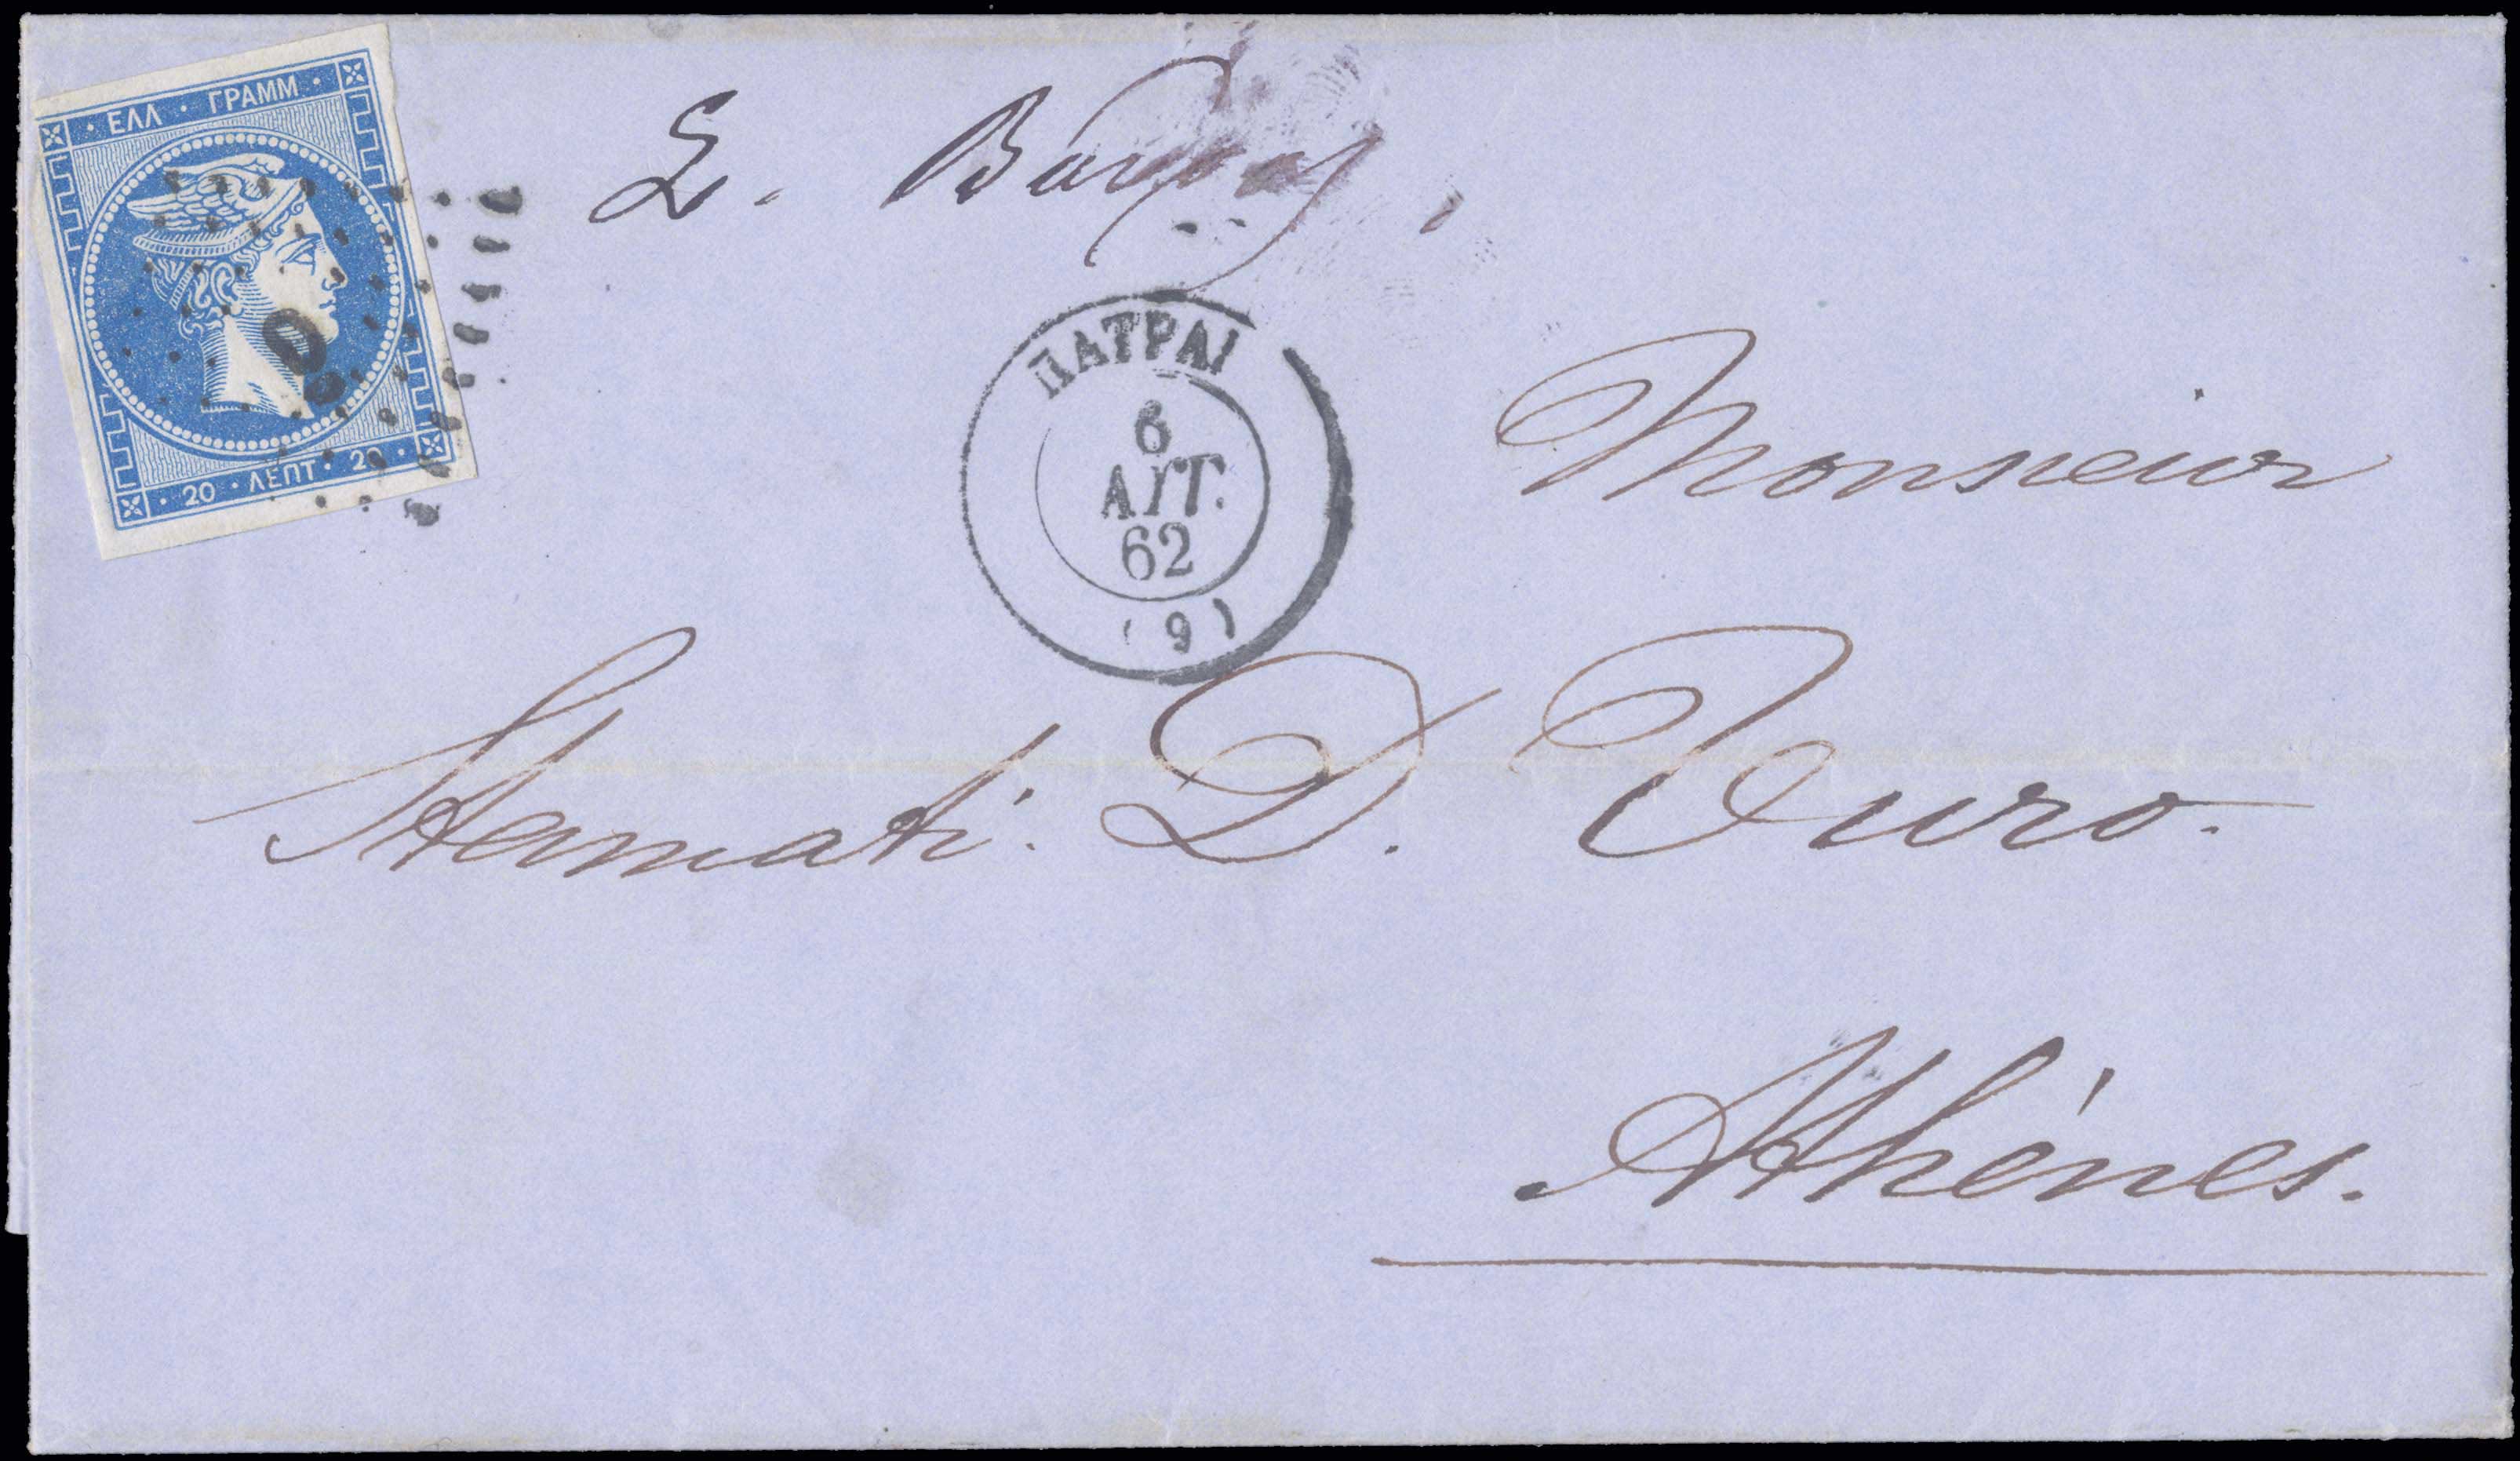 ΕΛΛ · ΓΡΑΜΜ
20 · ΛΕΠΤ · 20
9
Σ.
ΠΑΤΡΑΙ
6
ΑΥΓ.
62
(9)
Monsieur
Stamati D. Curo.
Athènes.